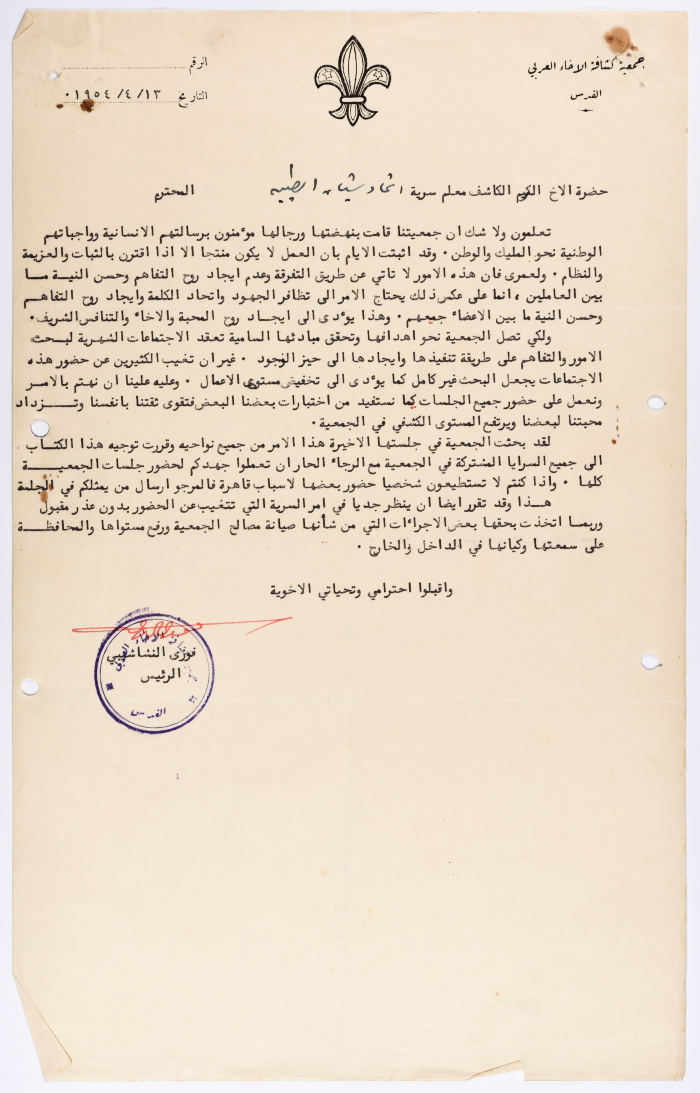 جمعية كشافة الاخاء العربي
القدس
الرقم
التاريخ ١٣ /٤/ ١٩٥٤٠
حضرة الاخ الكريم الكاشف معلم سرية اتحاد شبان المحترم
تعلمون ولا شك ان جمعيتنا قامت بنهضتها ورجالها مؤمنون برسالتهم الانسانية وواجباتهم
الوطنية نحو المليك والوطن ٠ وقد اثبتت الايام بان العمل لا يكون منتجا الا اذا اقترن بالثبات والعزيمة
والنظام ٠ ولعمرى فان هذه الامور لا تاتي عن طريق التفرقة وعدم ايجاد روح التفاهم وحسن النية مــا
بين العاملين ، انما على عكس ذلك يحتاج الامر الى تظافر الجهود واتحاد الكلمة وايجاد روح التفاهم
وحسن النية ما بين الاعضاء جمعيهم ٠ وهذا يوءدى الى ايجــاد روح المحبة والاخاء والتنافس الشريف ٠
ولكي تصل الجمعية نحو اهدافها وتحقق مبادئها السامية تعقد الاجتماعات الشهرية لبحــث
الامور والتفاهم على طريقة تنفيذها وايجادها الى حيز الوجود ٠ غير ان تغيب الكثيرين عن حضور هذه
الاجتماعات يجعل البحث غير كامل كما يوءدى الى تخفيض مستوى الاعمال ٠ وعليه علينا ان نهتم بالامر
ونعمل على حضور جميع الجلسات كما نستفيد من اختبارات بعضنا البعض فتقوى ثقتنا بانفسنا وتــزداد
محبتنا لبعضنا ويرتفع المستوى الكشفي في الجمعية ٠
لقد بحثت الجمعية في جلستها الاخيرة هذا الامر من جميع نواحيه وقررت توجيه هذا الكتاب
الى جميع السرايا المشتركة في الجمعية مع الرجاء الحار ان تعملوا جهدكم لحضور جلسات الجمعيــــة
كلها ٠ واذا كنتم لا تستطيعون شخصيا حضور بعضها لاسباب قاهرة فالمرجو ارسال من يمثلكم في الجلسة
هــذا وقد تقرر ايضا ان ينظر جديا في امر السرية التي تتغيب عن الحضور بدون عذر مقبول
وربمــا اتخذت بحقها بعض الاجراءات التي من شأنها صيانة مصالح الجمعية ورفع مستواها والمحافظــة
على سمعتها وكيانها في الداخل والخارج ٠
واقبلوا احترامي وتحياتي الاخوية
فوزى النشاشيبي
الرئيس
القدس